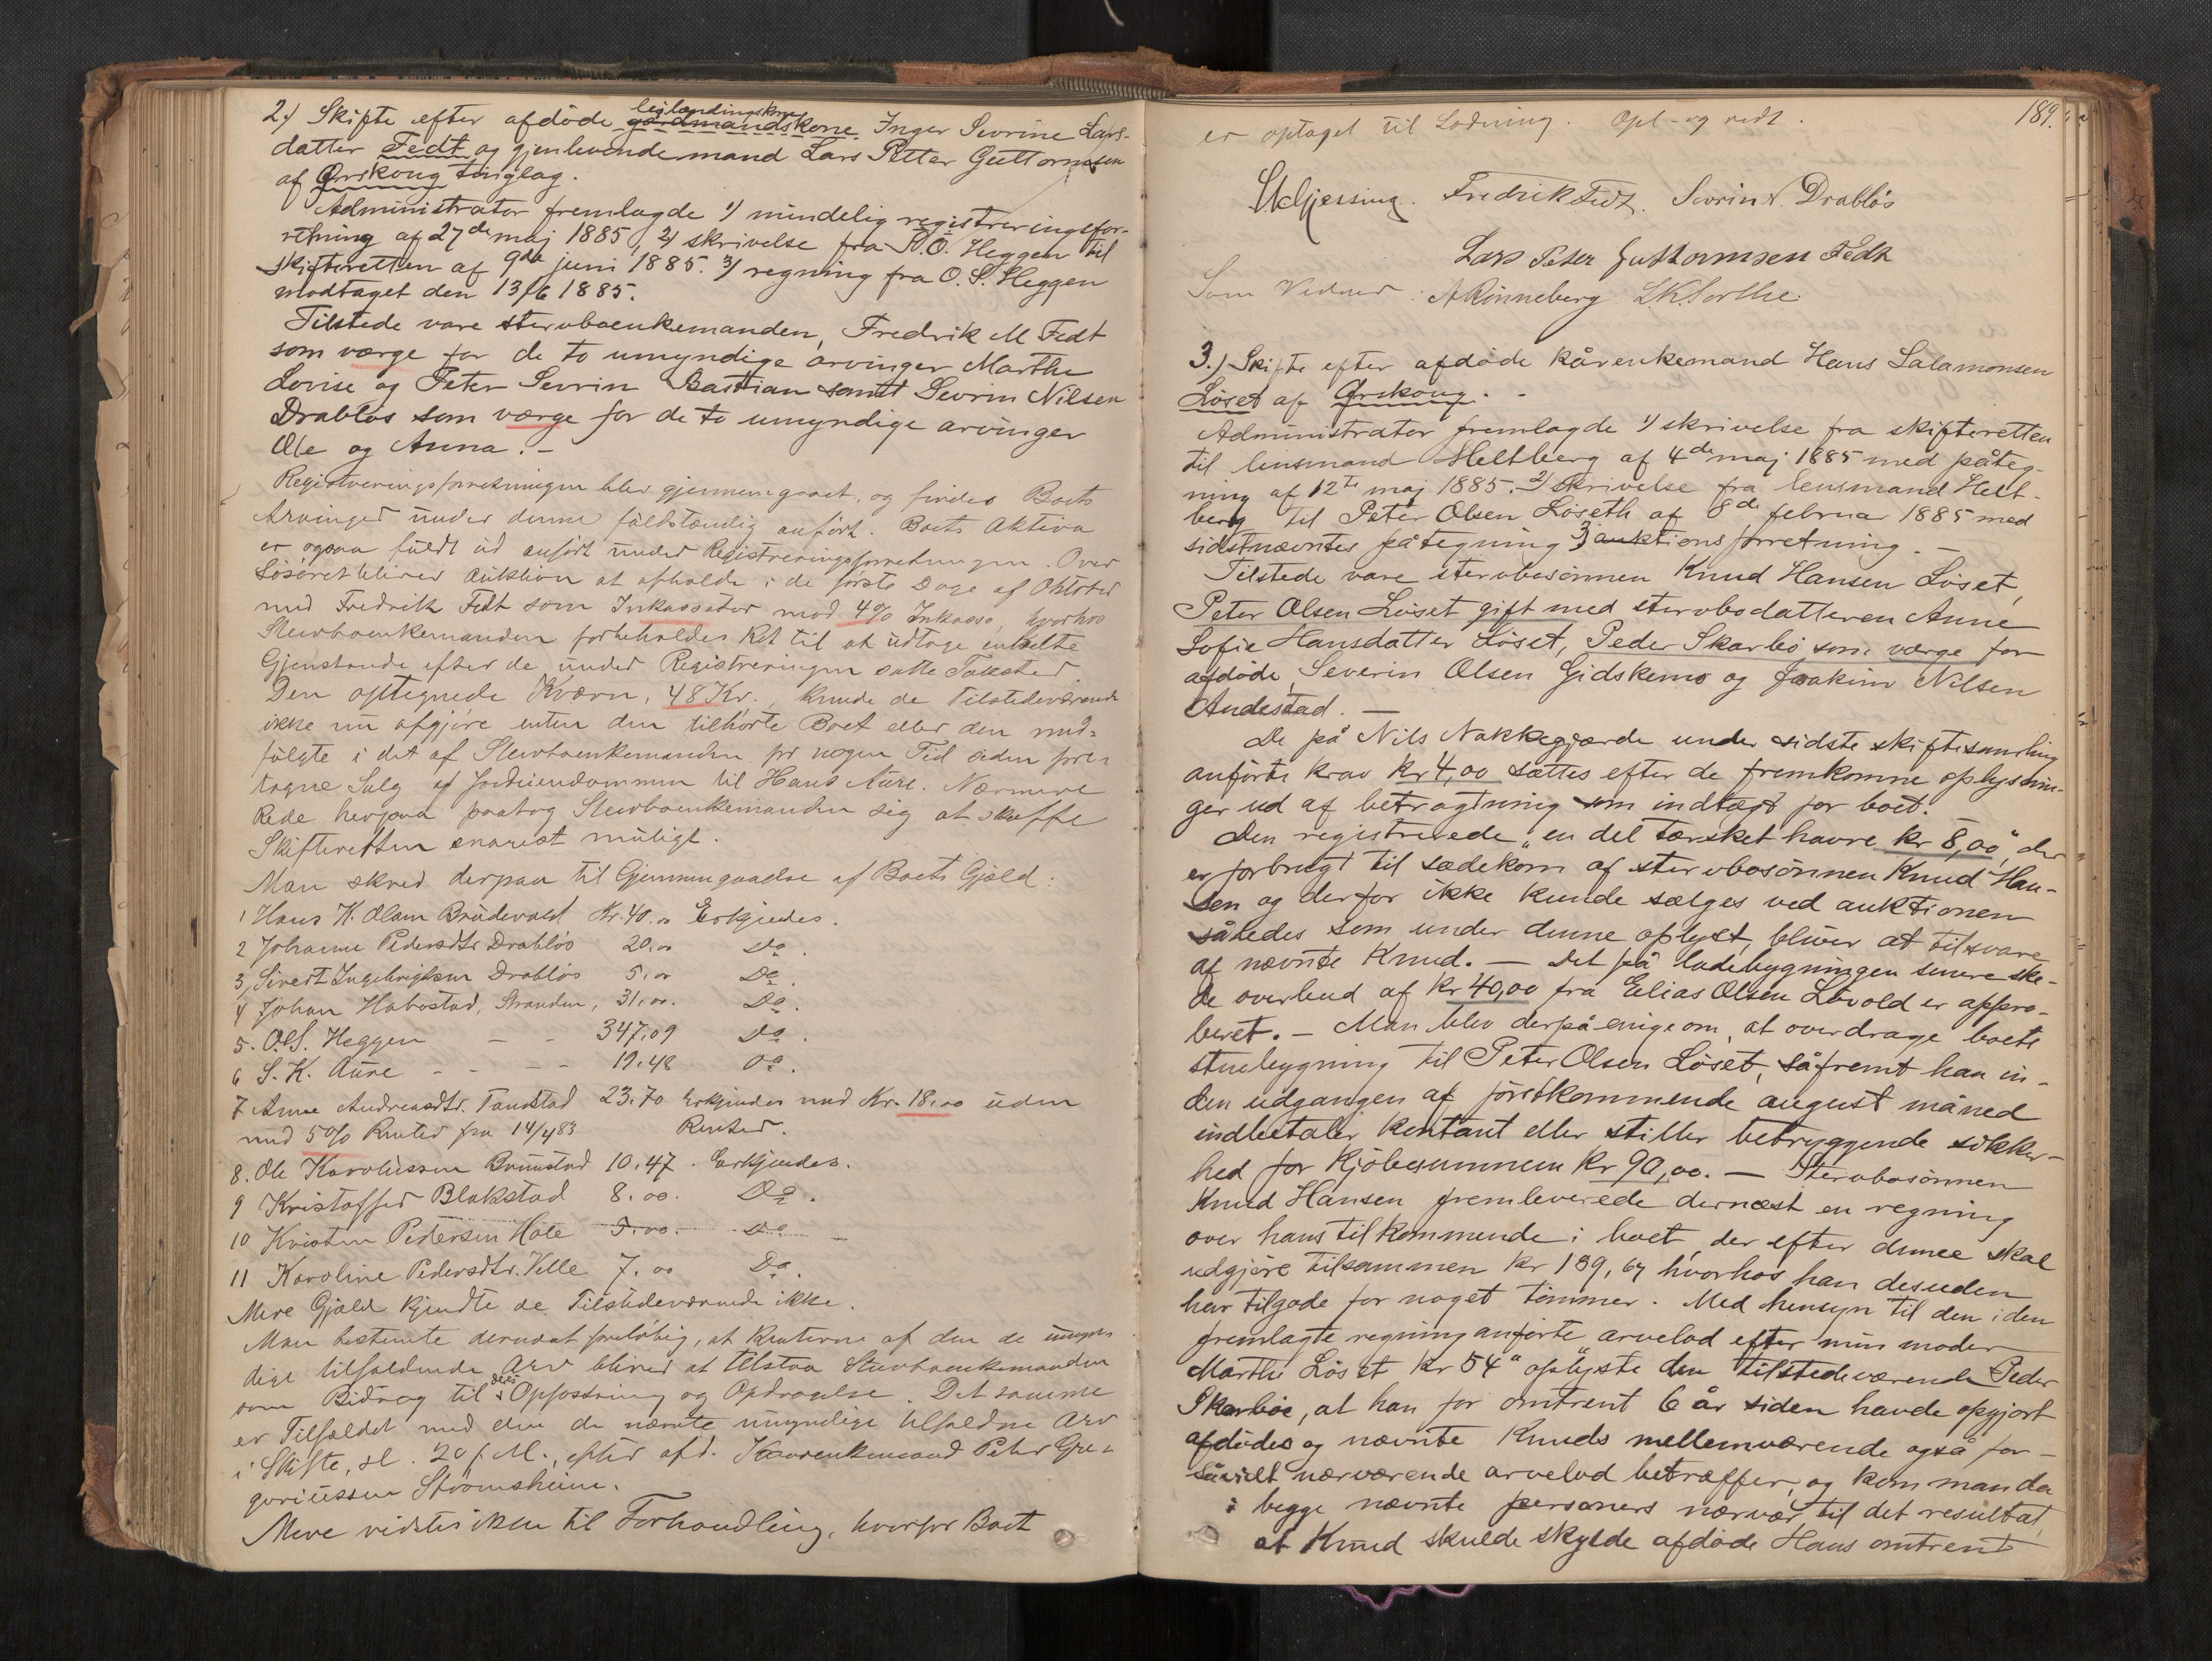 2.) Skifte efter afdöde leilændingskone gårdmandskone Inger Sevrine Lars-
datter Fedt og gjenlevende mand Lars Petter Guttormsen
af Ørskoug tinglag.
Administrator fremlagde 1) mindelig registreringsfor-
retning af 27de maj 1885, 2) skrivelse fra K. O. Heggen til
skifteretten af 9de juni 1885. 3) regning fra O. S. Heggen
modtaget den 13/6 1885.
Tilstede vare stervboenkemanden, Fredrik M Fedt
som værge for de to umyndige arvinger Marthe
Lovise og Peter Sevrin Bastian samt Sevrin Nilsen
Drabløs som værge for de to umyndige arvinger
Ole og Anna. -
Registreringsforretningen blev gjennemgaaet, og findes Boets
Arvinger under denne fuldstændig anført. Boets Aktiva
er ogsaa fuldt ud anført under Registreringsforretningen. Over
Løsøret bliver Auktion at afholde i de første Dage af Oktober
med Fredrik Fedt som Inkassator mod 4% Inkasso, hvorhos
Stervboenkemanden forbeholdes Ret til at udtage enkelte
Gjenstande efter de under Registreringen satte Takster.
Den optegnede Kværn, 48 Kr., kunde de Tilstedeværende
ikke nu afgjøre enten den tilhørte Boet eller den med-
fulgte i det af Stervboenkemanden for nogen Tid siden fore-
tagne Salg af Jordeiendommen til Hans Aure. Nærmere
Rede herpaa paatog Stervboenkemanden sig at skaffe
Skifteretten snarest muligt.
Man skred derpaa til Gjennemgaaelse af Boets Gjæld:
1 Hans K. Olsen Brudevold Kr. 40.00 Erkjendes.
2 Johanne Pedersdtr Drabløs 20.00 Do.
3, Sivert Ingebrigtsen Drabløs 5.00 Do.
4 Johan Habostad, Stranden, 31.00. Do.
5. O. S. Heggen - - 347.09 Do.
6 S. K. Aure - - - - 19.48 Do.
7 Anne Andreasdtr. Tandstad 23.70 Erkjendes med Kr. 18.00 uden
med 5% Renter fra 14/4 83 Renter.
8. Ole Karolussen Brunstad 10.47. Erkjendes.
9 Kristoffer Blakstad 8.00. Do.
10 Kristen Pedersen Hole 5.00. Do.
11 Karoline Pedersdtr. Velle 7.00 Do.
Mere Gjæld kjendte de Tilstedeværende ikke.
Man bestemte dernæst foreløbig, at Renterne af den de umyn-
dige tilfaldende Arv bliver at tilstaa Stervboenkemanden
som Bidrag til deres Opfostring og Opdragelse. Det samme
er Tilfældet med den de nævnte umyndige tilfaldne Arv
i Skifte, sl. 20 f. M., efter afd. Kaarenkemand Peter Gre-
goriussen Strømsheim.
Mere vidstes ikke til Forhandling, hvorfor Boet
189.
er optaget til Lodning. Opl- og vedt.
Fredrik Fedt. Sevrin N. Drabløs
Lars Peter Guttormsen Fedt
Som Vidner: A Rønneberg. L K Sorthe.
3.) Skifte efter afdöde kårenkemand Hans Salamonsen
Løset af Ørskoug. -
Administrator fremlagde 1) skrivelse fra skifteretten
til lensmand Heltberg af 4de maj 1885 med påteg-
ning af 12te maj 1885. 2) Skrivelse fra lensmand Helt-
berg til Peter Olsen Löseth af 8de februar 1885 med
sidstnævntes påtegning 3) auktionsforretning. -
Tilstede vare stervbosønnen Knud Hansen Löset,
Peter Olsen Löset gift med stervbodatteren Anne
Sofie Hansdatter Löset, Peder Skarbö som værge for
afdöde, Severin Olsen Gidskemo og Joakim Nilsen
Andestad. -
De på Nils Nakkegjærde under sidste skiftesamling
anförte krav kr 4,00 sættes efter de fremkomne oplysnin-
ger ud af betragtning som indtægt for boet.
Den registrerede "en del tærsket havre kr 8,00", der
er forbrugt til sædekorn af stervbosönnen Knud Han-
sen og derfor ikke kunde sælges ved auktionen
således som under denne oplyst, bliver at tilsvare
af nævnte Knud. - Det på ladebygningen senere ske-
de overbud af kr 40,00 fra Elias Olsen Lövold er appro-
beret. - Man blev derpå enige om, at overdrage boets
stuebygning til Peter Olsen Löset, såfremt han in-
den udgangen af förstkommende august måned
indbetaler kontant eller stiller betryggende sikker-
hed for kjöbesummen kr 90,00. - Stervbosönnen
Knud Hansen fremleverede dernæst en regning
over hans tilkommende i boet, der efter denne skal
udgjöre tilsammen kr 189,67 hvorhos han desuden
har tilgode for noget tömmer. Med hensyn til den i den
fremlagte regning anförte "arvelod efter min moder
Marthe Löset kr 54" oplyste den tilstedeværende Peder
Skarböe, at han for omtrent 6 år siden havde opgjort
afdödes og nævnte Knuds mellemværende også for-
såvidt nærværende arvelod betræffer, og kom man da
i begge nævnte personers nærvær til det resultat,
at Knud skulde skylde afdöde Hans omtrent